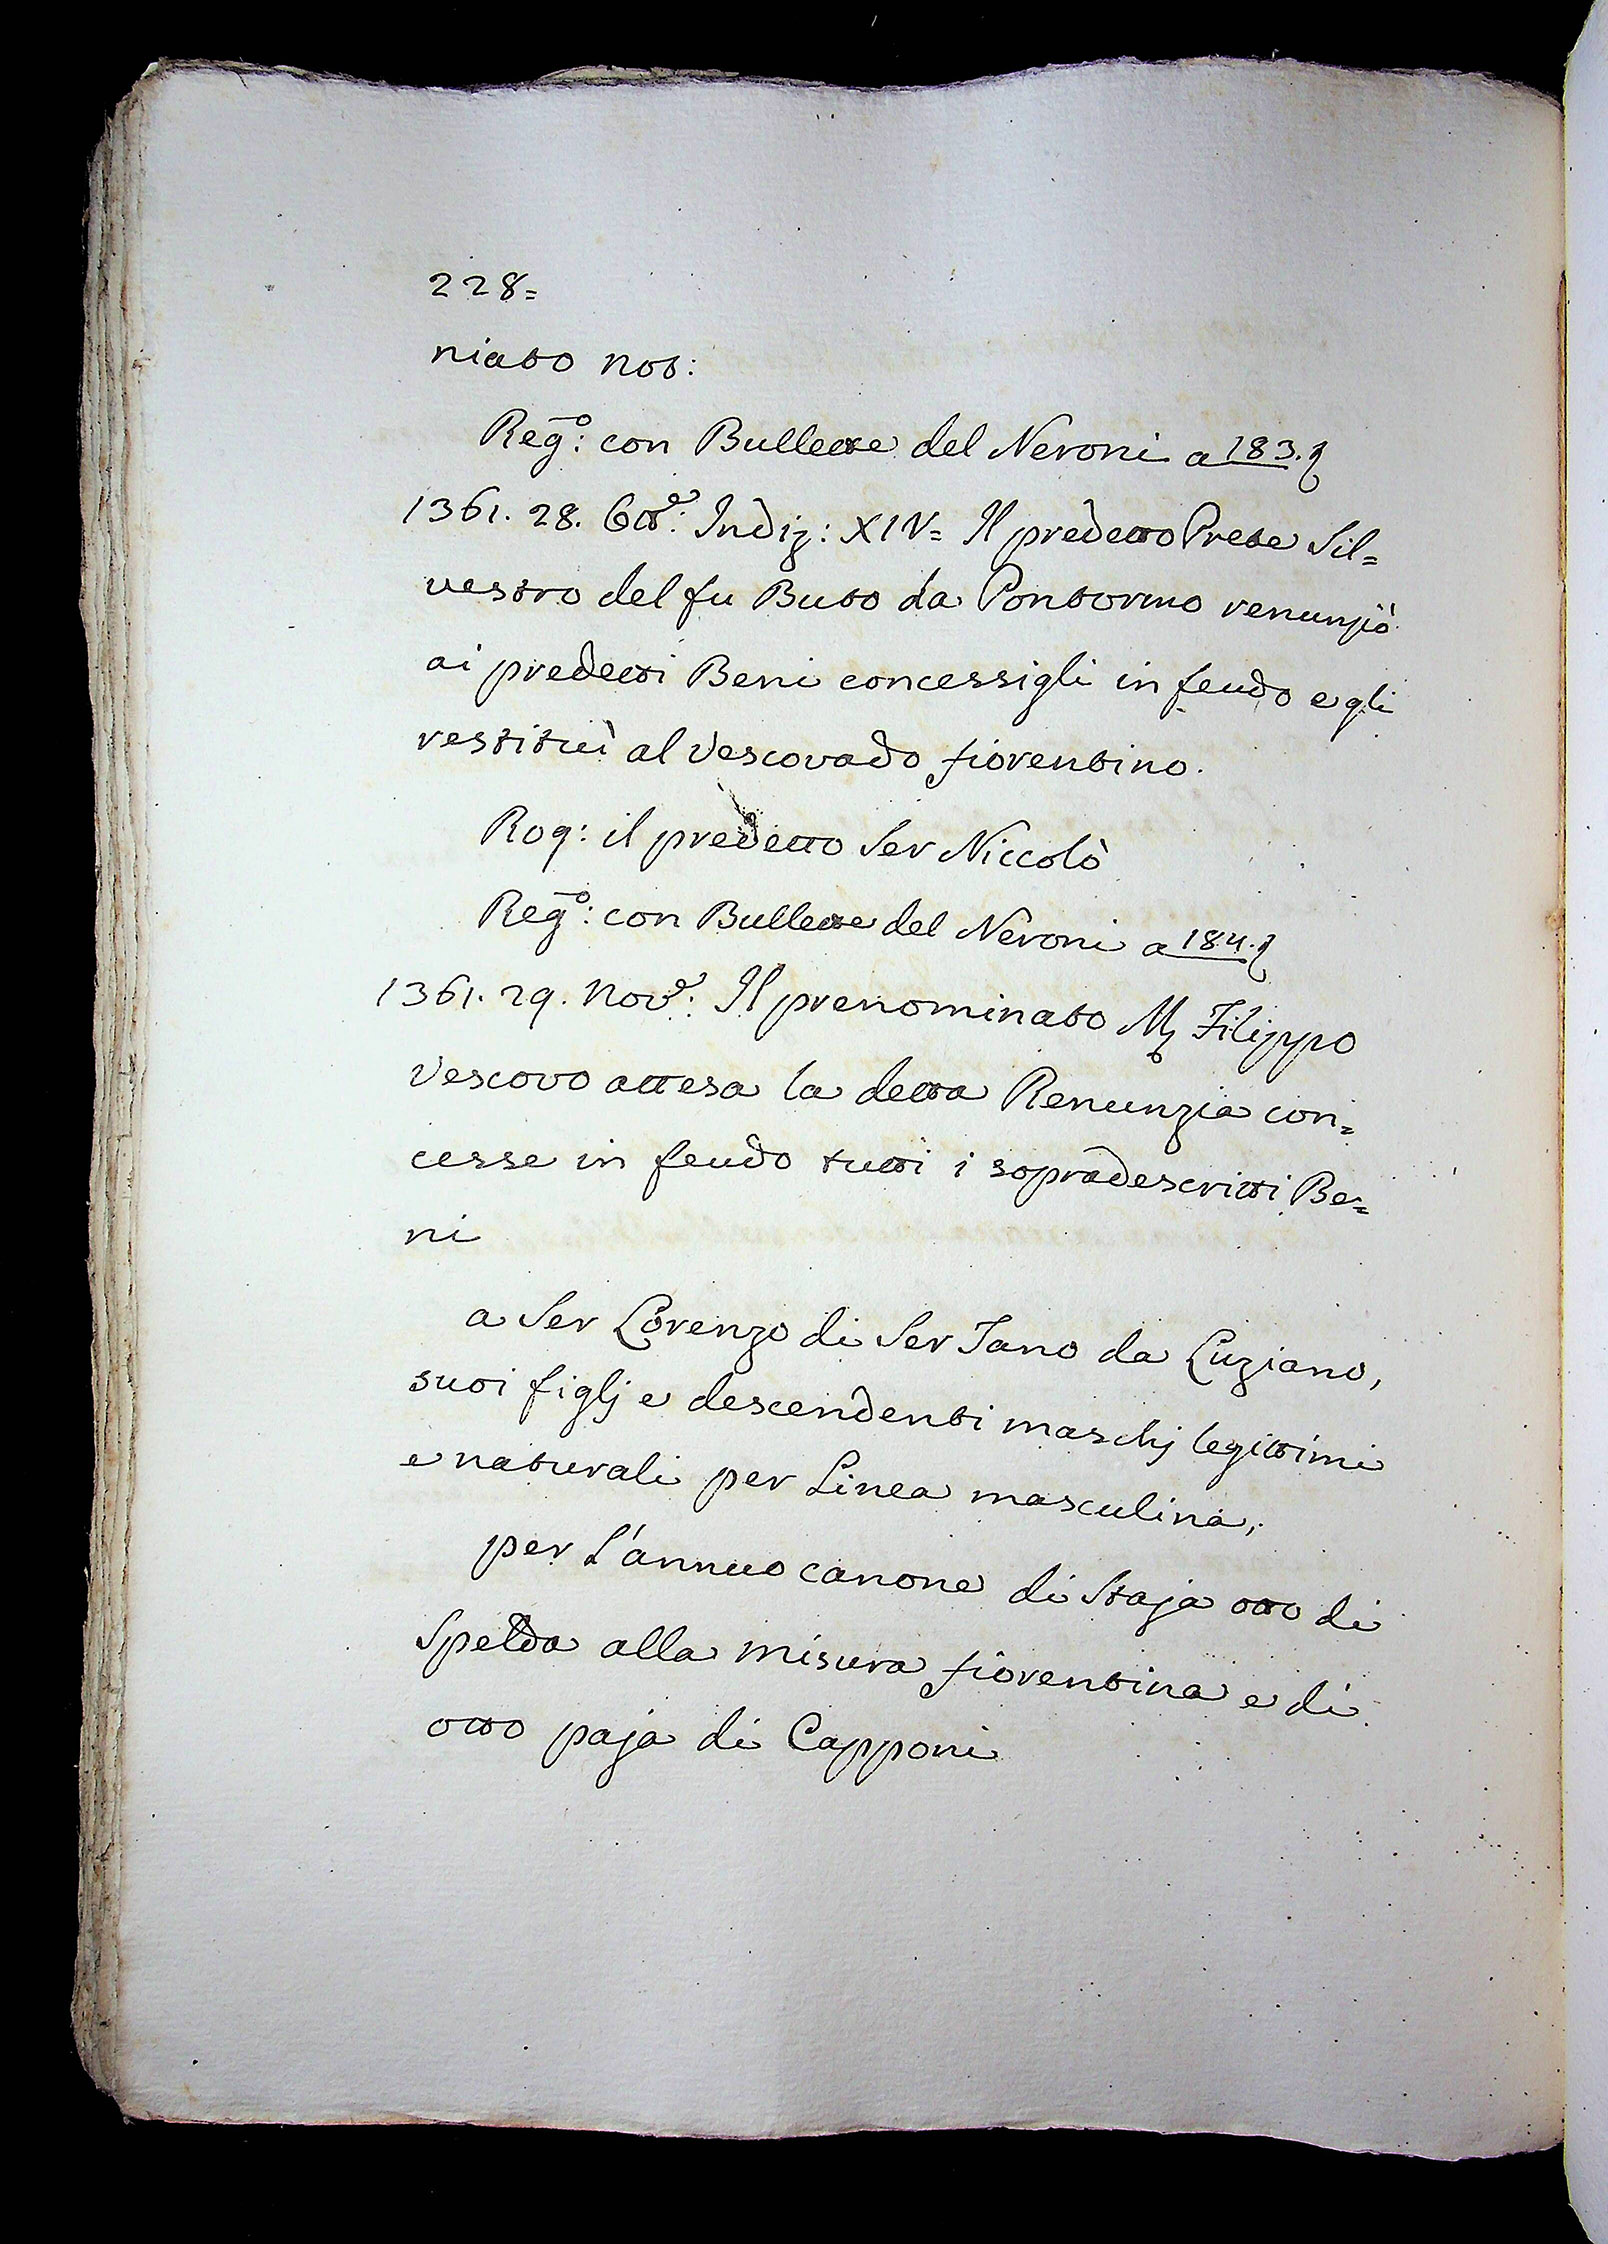 228=
niato not:
Reg.º: con Bullette del Neroni a 183.
1361. 28. Ott.e: Indiz: XIV= Il predetto Prete Sil=
vestro del fu Buto da Pontormo renunziò
ai predetti Beni concessigli in feudo e gli
restituì al Vescovado fiorentino.
Rog: il predetto Ser Niccolò
Reg.º: con Bullette del Neroni a 184.
1361. 29. Nov.e: Il prenominato M. Filippo
Vescovo attesa la detta Renunzia con=
cesse in feudo tutti i sopradescritti Be=
ni
a Ser Lorenzo di Ser Tano da Luziano,
suoi figlj e descendenti maschj legittimi
e naturali per Linea masculina,
per L'annuo canone di Staja otto di
Spelda alla misura fiorentina e di
otto paja di Capponi